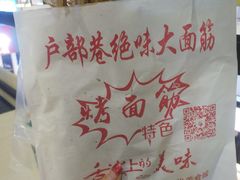 户部巷绝味大面筋
烤面筋
特色
舌尖上的美味